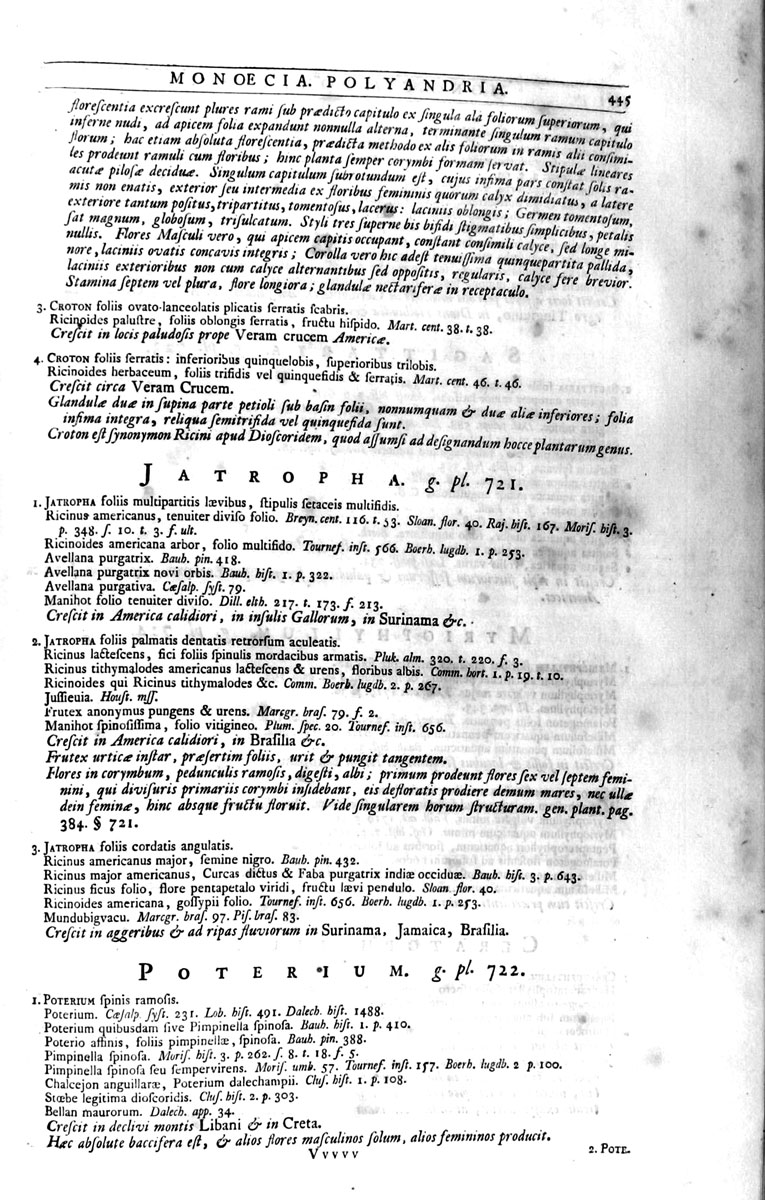 MONOECIA. POLYANDRIA. 445
florescentia excrescunt plures rami sub prædicto capitulo ex singula ala foliorum superiorum, qui
inferne nudi, ad apicem folia expandunt nonnulla alterna, terminante singulum ramum capitulo
florum; hac etiam absoluta florescentia, prædicta methodo ex alis foliorum in ramis alii consimi-
les prodeunt ramuli cum floribus; hinc planta semper corymbi formam servat. Stipulæ lineares
acutæ pilosæ deciduæ. Singulum capitulum subrotundum est, cujus infima pars constat solis ra-
mis non enatis, exterior seu intermedia ex floribus femininis quorum calyx dimidiatus, a latere
exteriore tantum positus, tripartitus, tomentosus, lacerus: laciniis oblongis; Germen tomentosum,
sat magnum, globosum, trisulcatum. Styli tres superne bis bifidi stigmatibus simplicibus, petalis
nullis. Flores Masculi vero, qui apicem capitis occupant, constant consimili calyce, sed longe mi-
nore, laciniis ovatis concavis integris; Corolla vero hic adest tenuissima quinquepartita pallida,
laciniis exterioribus non cum calyce alternantibus sed oppositis, regularis, calyce fere brevior.
Stamina septem vel plura, flore longiora; glandulæ nectariferæ in receptaculo.
3. CROTON foliis ovato-lanceolatis plicatis serratis scabris.
Ricinoides palustre, foliis oblongis serratis, fructu hispido. Mart. cent. 38. t. 38.
Crescit in locis paludosis prope Veram crucem Americæ.
4. CROTON foliis serratis: inferioribus quinquelobis, superioribus trilobis.
Ricinoides herbaceum, foliis trifidis vel quinquefidis & serratis. Mart. cent. 46. t. 46.
Crescit circa Veram Crucem.
Glandulæ duæ in supina parte petioli sub basin folii, nonnumquam & duæ aliæ inferiores; folia
infima integra, reliqua semitrifida vel quinquefida sunt.
Croton est synonymon Ricini apud Dioscoridem, quod assumsi ad designandum hocce plantarum genus.
JATROPHA. g. pl. 721.
1. JATROPHA foliis multipartitis lævibus, stipulis setaceis multifidis.
Ricinus americanus, tenuiter diviso folio. Breyn. cent. 116. t. 53. Sloan. flor. 40. Raj. hist. 167. Moris. hist. 3.
p. 348. s. 10. t. 3. f. ult.
Ricinoides americana arbor, folio multifido. Tournef. inst. 566. Boerh. lugdb. 1. p. 253.
Avellana purgatrix. Bauh. pin. 418.
Avellana purgatrix novi orbis. Bauh. hist. 1. p. 322.
Avellana purgativa. Cæsalp. syst. 79.
Manihot folio tenuiter diviso. Dill. elth. 217. t. 173. f. 213.
Crescit in America calidiori, in insulis Gallorum, in Surinama &c.
2. JATROPHA foliis palmatis dentatis retrorsum aculeatis.
Ricinus lactescens, fici foliis spinulis mordacibus armatis. Pluk. alm. 320. t. 220. f. 3.
Ricinus tithymalodes americanus lactescens & urens, floribus albis. Comm. hort. 1. p. 19. t. 10.
Ricinoides qui Ricinus tithymalodes &c. Comm. Boerh. lugdb. 2. p. 267.
Jussieuia. Houst. mss.
Frutex anonymus pungens & urens. Marcgr. bras. 79. f. 2.
Manihot spinosissima, folio vitigineo. Plum. spec. 20. Tournef. inst. 656.
Crescit in America calidiori, in Brasilia &c.
Frutex urticæ instar, præsertim foliis, urit & pungit tangentem.
Flores in corymbum, pedunculis ramosis, digesti, albi; primum prodeunt flores sex vel septem femi-
nini, qui divisuris primariis corymbi insidebant, eis defloratis prodiere demum mares, nec ullæ
dein feminæ, hinc absque fructu floruit. Vide singularem horum structuram. gen. plant. pag.
384. § 721.
3. JATROPHA foliis cordatis angulatis.
Ricinus americanus major, semine nigro. Bauh. pin. 432.
Ricinus major americanus, Curcas dictus & Faba purgatrix indiæ occiduæ. Bauh. hist. 3. p. 643.
Ricinus ficus folio, flore pentapetalo viridi, fructu lævi pendulo. Sloan. flor. 40.
Ricinoides americana, gossypii folio. Tournef. inst. 656. Boerh. lugdb. 1. p. 253.
Mundubigvacu. Marcgr. bras. 97. Pis. bras. 83.
Crescit in aggeribus & ad ripas fluviorum in Surinama, Jamaica, Brasilia.
POTERIUM. g. pl. 722.
1. POTERIUM spinis ramosis.
Poterium. Cæsalp. syst. 231. Lob. hist. 491. Dalech. hist. 1488.
Poterium quibusdam sive Pimpinella spinosa. Bauh. hist. 1. p. 410.
Poterio affinis, foliis pimpinellæ, spinosa. Bauh. pin. 388.
Pimpinella spinosa. Moris. hist. 3. p. 262. s. 8. t. 18. f. 5.
Pimpinella spinosa seu sempervirens. Moris. umb. 57. Tournef. inst. 157. Boerh. lugdb. 2 p. 100.
Chalcejon anguillaræ, Poterium dalechampii. Clus. hist. 1. p. 108.
Stœbe legitima dioscoridis. Clus. hist. 2. p. 303.
Bellan maurorum. Dalech. app. 34.
Crescit in declivi montis Libani & in Creta.
Hæc absolute baccifera est, & alios flores masculinos solum, alios femininos producit.
Vvvvv 2. POTE.